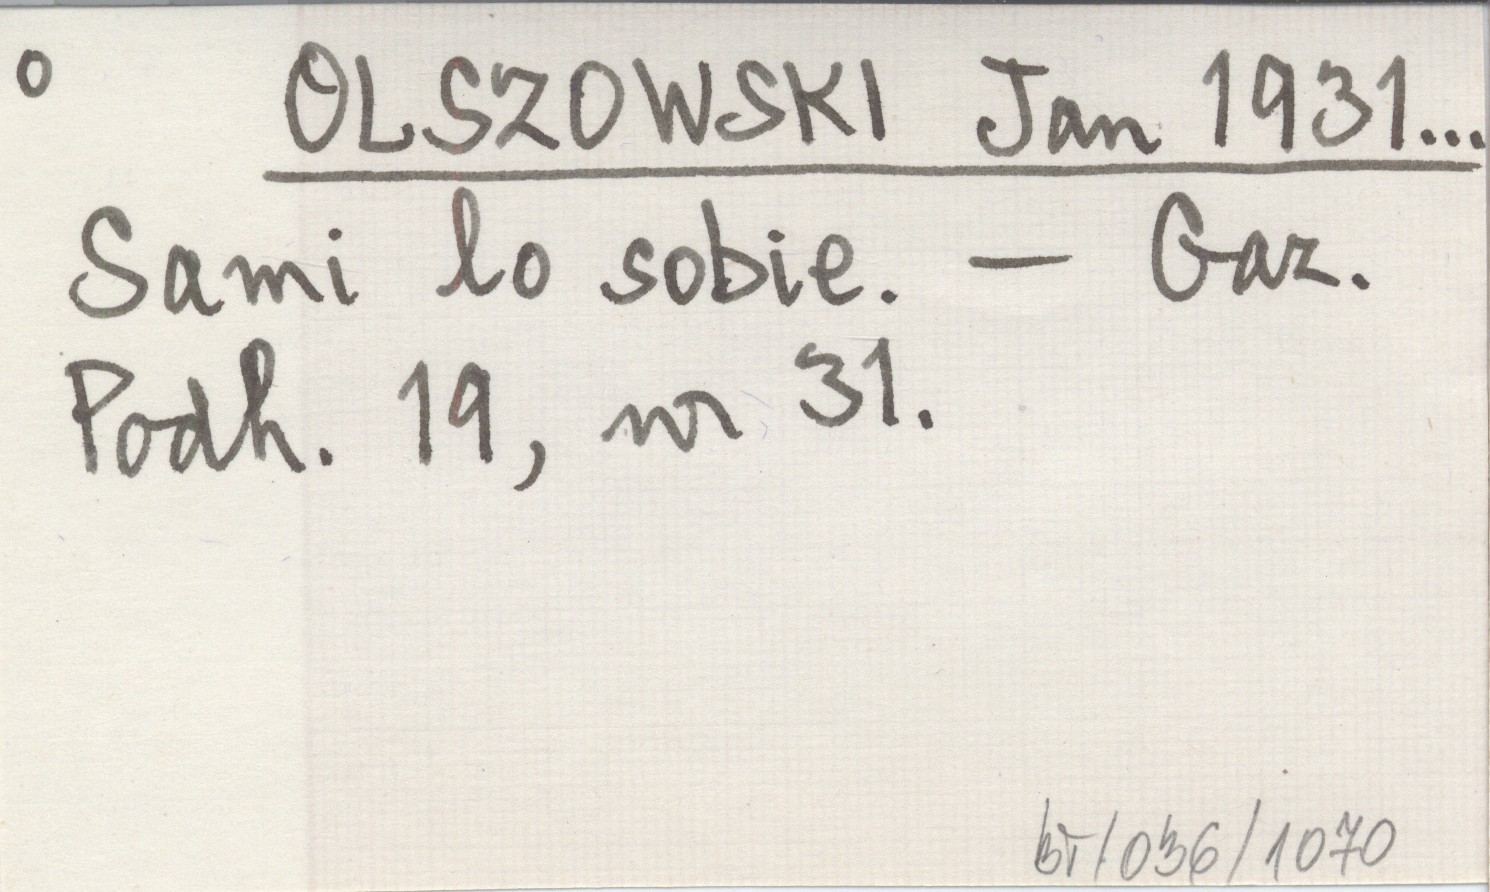 o OLSZOWSKI Jan 1931...
Sami lo sobie. — Gaz.
Podh. 19, nr 31.
bt/036/1070